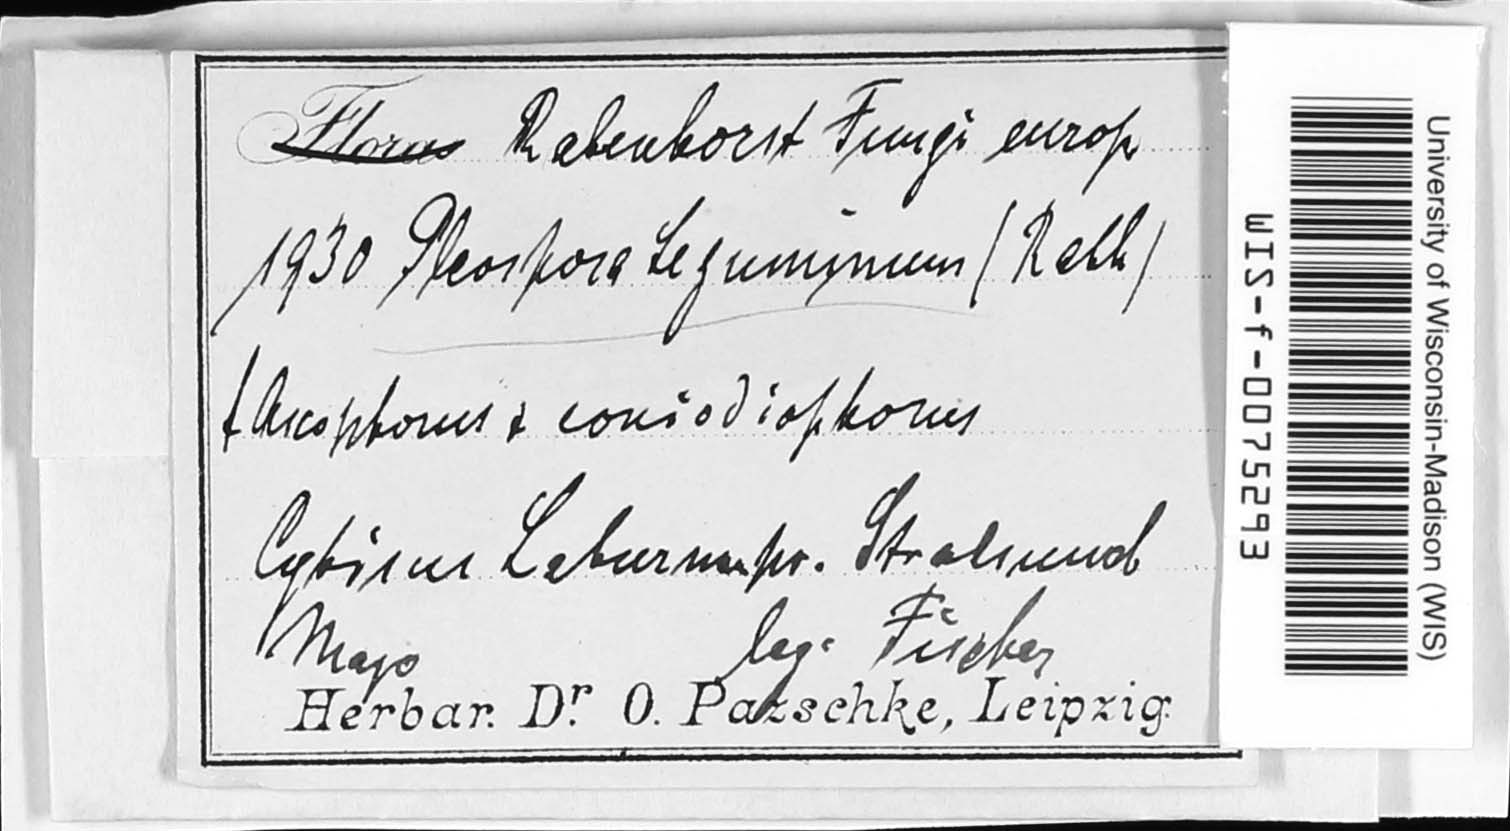 Florus Rabenhorst Fungi europ
1930 Pleospora Leguminum (Rabh)
f Ascophorus & conidiophorus
Cytisus Laburnum pr. Stralsund
Majo leg. Fischer
Herbar. Dr. O. Pazschke, Leipzig.
University of Wisconsin-Madison (WIS)
WIS-f-0075293